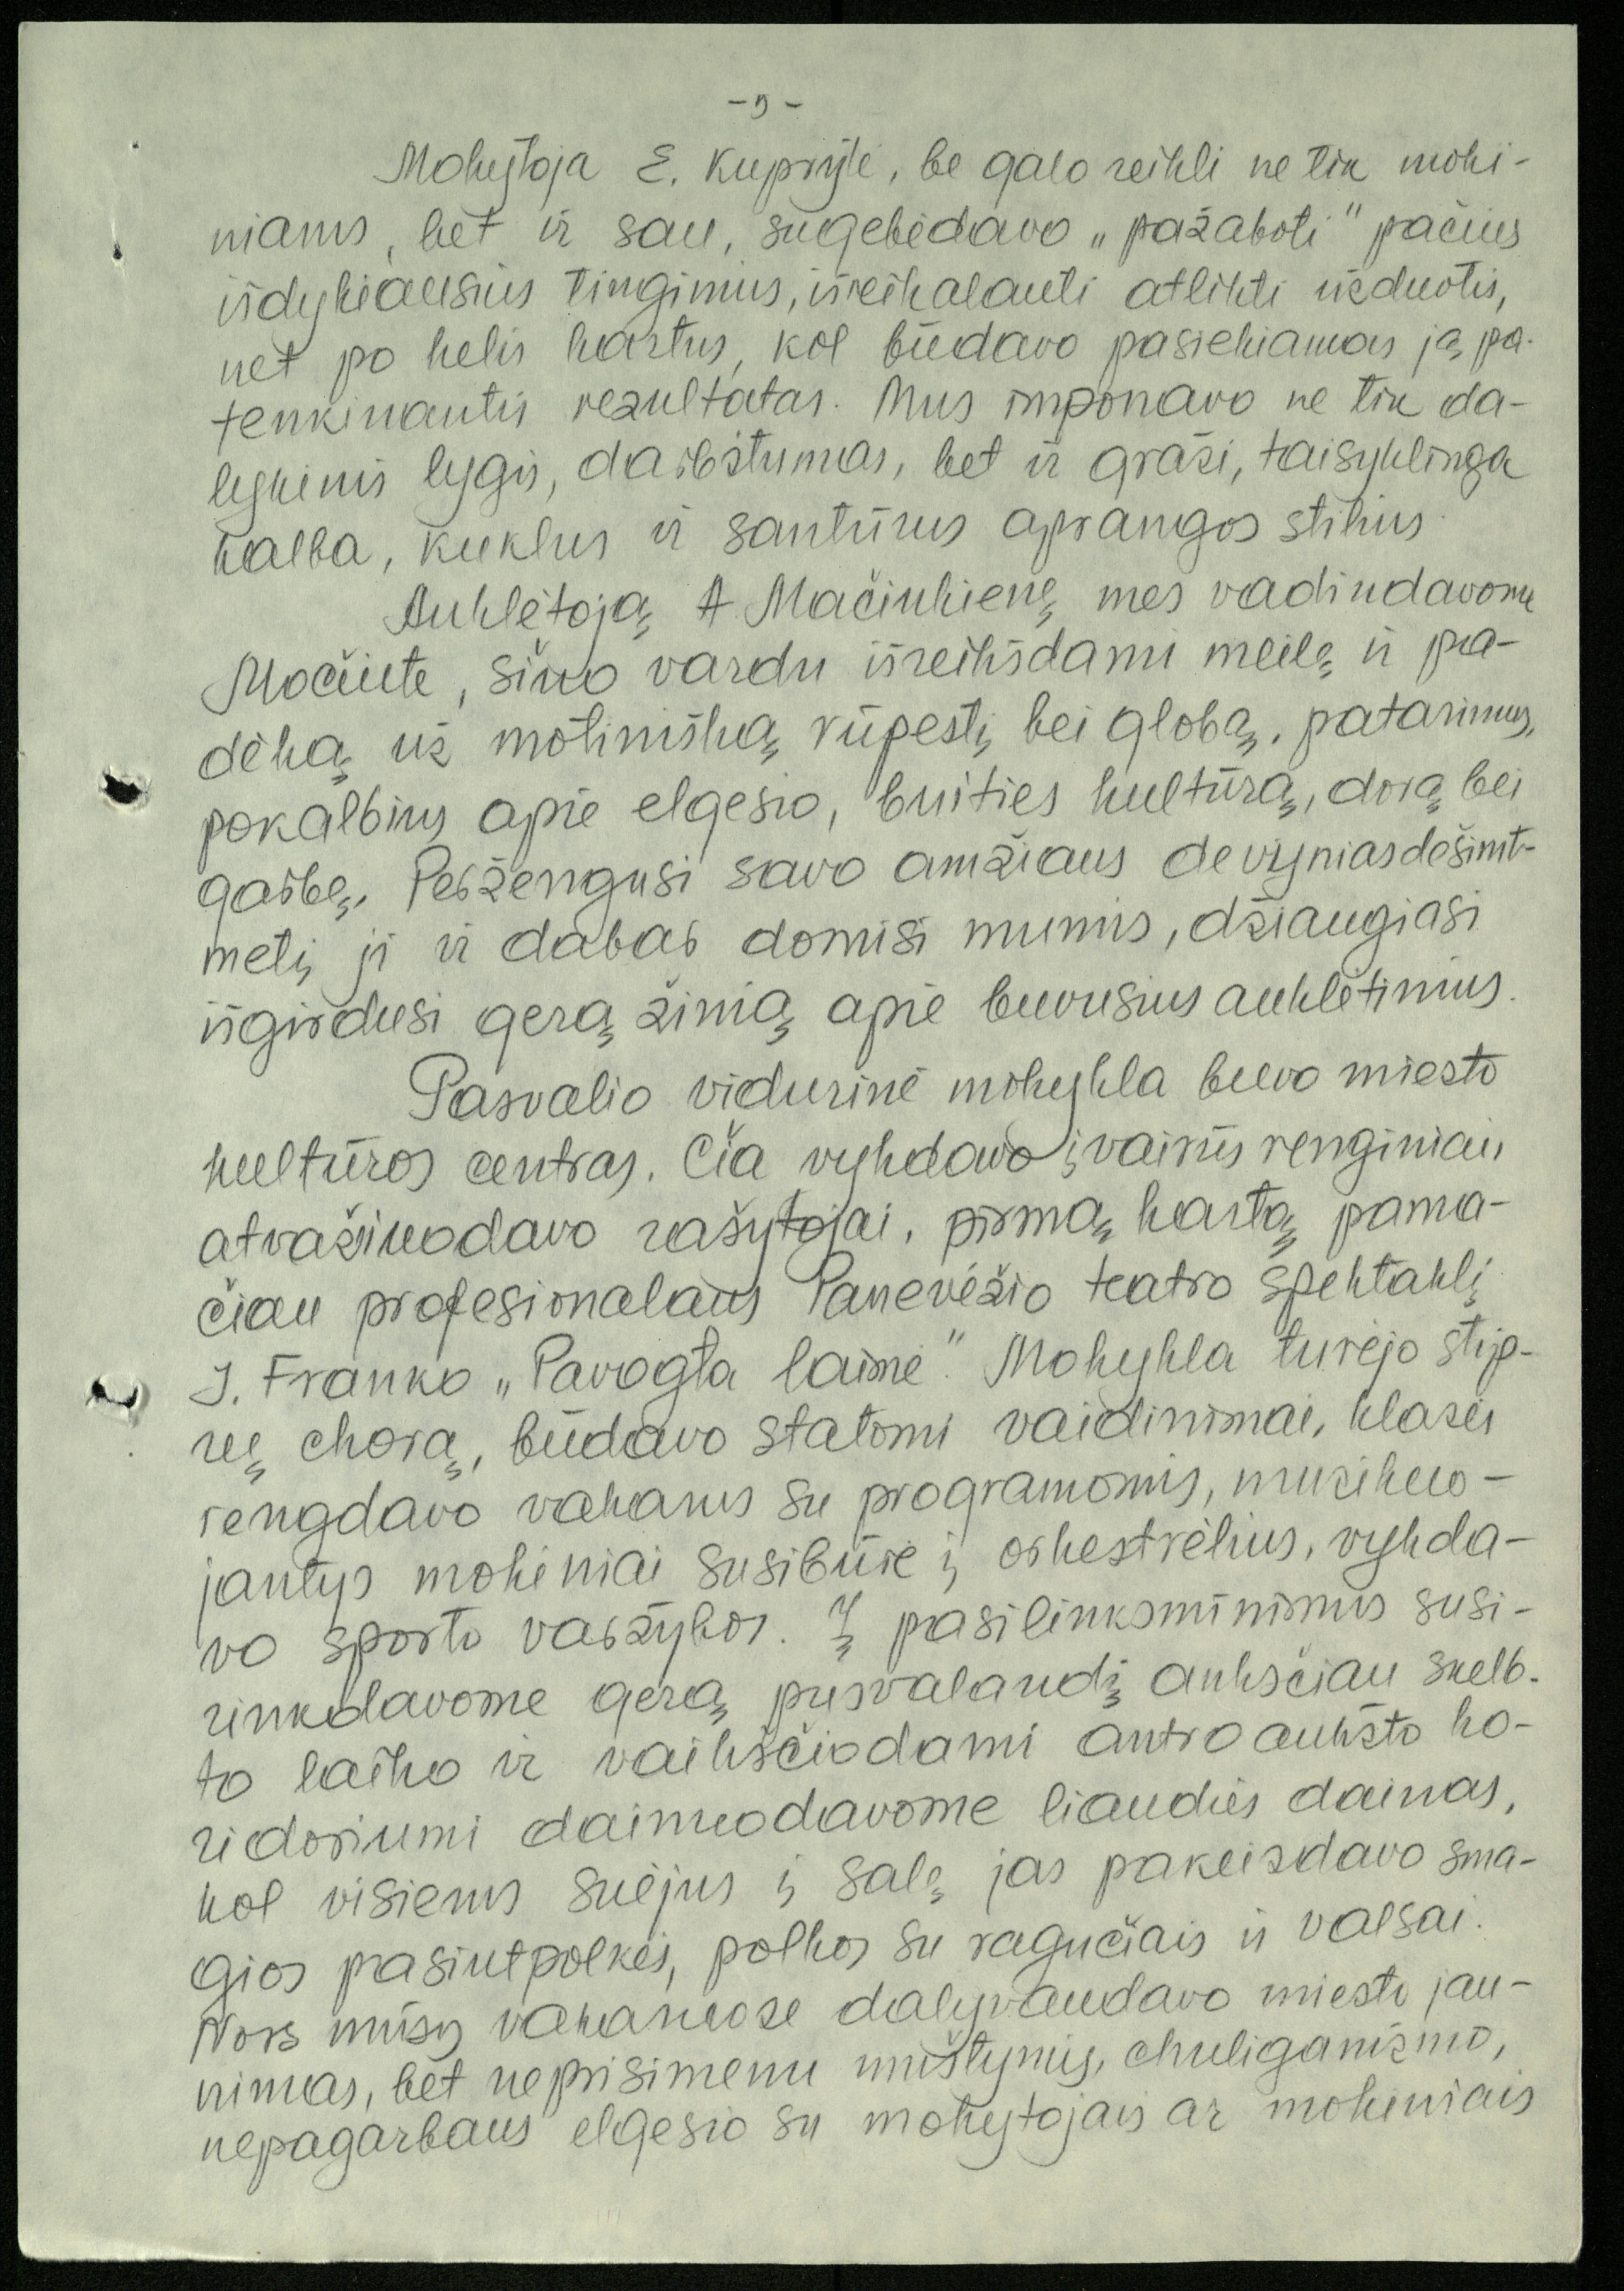 -9-
Mokytoja E. Kuprytė, be galo reikli ne tik moki-
niams, bet ir sau, sugebėdavo „pažaboti" pačius
išdykiausius tinginius, išreikalauti atlikti užduotis,
net po kelis kartus, kol būdavo pasiekiamas ją pa-
tenkinantis rezultatas. Mus imponavo ne tik da-
lykinis lygis, darbštumas, bet ir graži, taisyklinga
kalba, kuklus ir santūrus aprangos stilius.
Auklėtoją A. Mačiukienę mes vadindavome
Močiute, šiuo vardu išreikšdami meilę ir pa-
dėką už motinišką rūpestį bei globą, patarimus,
pokalbius apie elgesio, buities kultūrą, dorą bei
garbę. Peržengusi savo amžiaus devyniasdešimt-
metį ji ir dabar domisi mumis, džiaugiasi
išgirdusi gerą žinią apie buvusius auklėtinius.
Pasvalio vidurinė mokykla buvo miesto
kultūros centras. Čia vykdavo įvairūs renginiai,
atvažiuodavo rašytojai, pirmą kartą pama-
čiau profesionalaus Panevėžio teatro spektaklį
I. Franko „Pavogta laimė". Mokykla turėjo stip-
rų chorą, būdavo statomi vaidinimai, klasės
rengdavo vakarus su programomis, muzikuo-
jantys mokiniai susibūrė į orkestrėlius, vykda-
vo sporto varžybos. Į pasilinksminimus susi-
rinkdavome gerą pusvalandį anksčiau skelb-
to laiko ir vaikščiodami antro aukšto ko-
ridoriumi dainuodavome liaudies dainas,
kol visiems suėjus į salę jas pakeisdavo sma-
gios pasiutpolkės, polkos su ragučiais ir valsai.
Nors mūsų vakaruose dalyvaudavo miesto jau-
nimas, bet neprisimenu muštynių, chuliganizmo,
nepagarbaus elgesio su mokytojais ar mokiniais